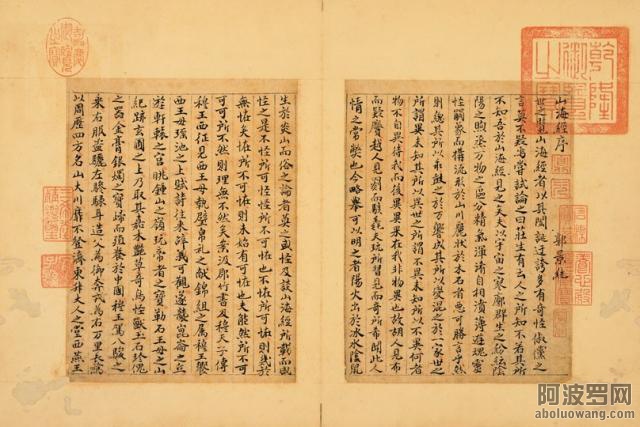 乾隆御覽之寶
山海經序 郭景純
世之覽山海經者以其閎誕迂誇多有奇怪俶儻之
言莫不疑焉嘗試論之曰莊生有云人之所知不若其所
不知吾於山海經見之矣夫以宇宙之寥廓群生之紛紜陰
陽之煦蒸万物之區分精氣渾淆自相濆薄遊魂靈
怪觸象而構流形於山川麗狀於木石者惡可勝言乎然
則總其所以乖鼓之於響成其所以變混之於一世之
所謂異未知其所以異世之所謂不異未知其所以不異何者
物不自異待我而後異異果在我非物異也故胡人見布
而疑黂越人見罽而駭毳夫玩所習見而奇所希聞此人
情之常蔽也今略舉可以明之者陽火出於冰水陰鼠
生於炎山而俗之論者莫之或怪及談山海經所載而咸
怪之是不怪所可怪而怪所不可怪也不怪所可怪則幾於
無怪矣怪所不可怪則未始有可怪也夫能然所不可
可可所不然則理無不然矣案汲郡竹書及穆天子傳
穆王西征見西王母執璧帛之獻錦組之属穆王饗
西王母瑤池之上賦詩往來辭義可觀遂襲崑崙之丘
遊軒轅之宮眺鍾山之嶺玩帝者之寶勒石王母之山
紀跡玄圃之上乃取其嘉木艷草奇鳥怪獸玉石珍瑰
之器金膏銀燭之寶歸而殖養於中國穆王駕八駿之
乘右服盜驪左驂騄耳造父為御奔戎為右万里長騖
以周歷四方名山大川靡不登濟東升大人之堂西燕王
阿波罗网
aboluowang.com